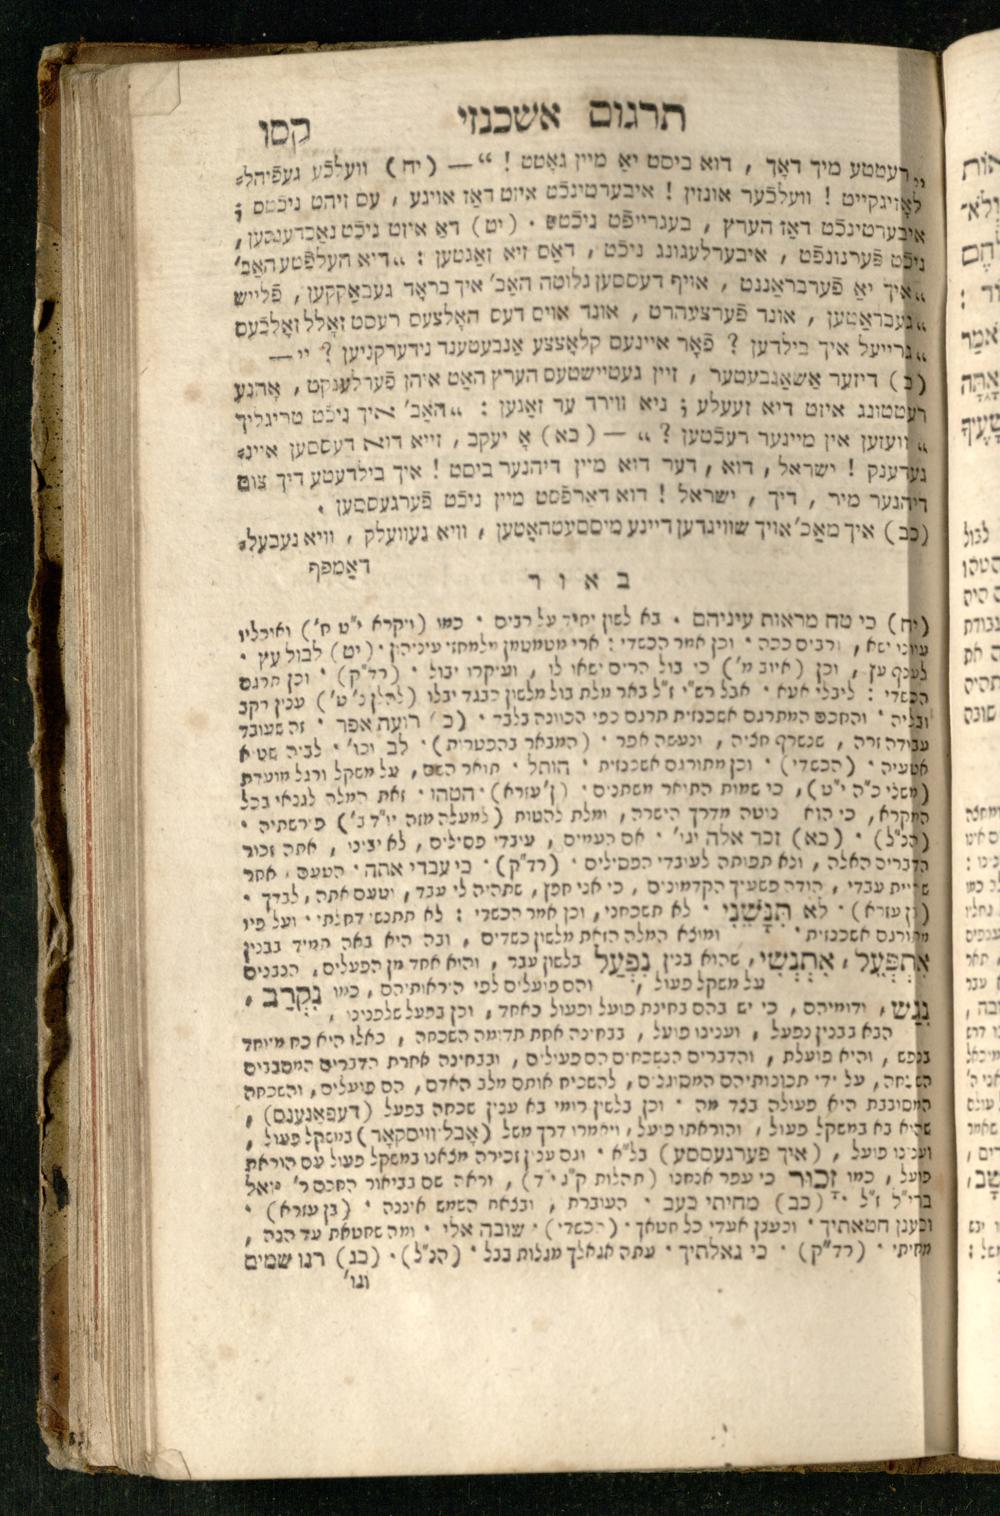 תרגום אשכנזי
קסו
„רעטטע מיך דאָך , דוא ביסט יאַ מיין גאָטט ! “ — (יח) וועלכֿע געפֿיהל⸗
לאָזיגקייט ! וועלכֿער אונזין ! איבערטינכֿט איזט דאַז אויגע , עס זיהט ניכֿטס ;
איבערטינכֿט דאַז הערץ , בעגרייפֿט ניכֿטס . (יט) דאַ איזט ניכֿט נאַכדענקען ,
ניכֿט פֿערנונפֿט , איבערלעגונג ניכֿט , דאַס זיא זאַגטען : „דיא העלפֿטע האַב'
„איך יאַ פֿערבראַננט , אויף דעססען גלוטה האַב' איך בראָד געבאַקקען , פֿלייש
„געבראַטען , אונד פֿערצעהרט , אונד אויס דעס האָלצעס רעסט זאָלל זאָלכֿעס
„גרייעל איך בילדען ? פֿאָר איינעם קלאָצצע אַנבעטענד נידערקניען ? יי —
(כ) דיזער אַשאַנבעטער , זיין געטיישטעס הערץ האַט איהן פֿערלענקט , אָהנע
רעטטונג איזט דיא זעעלע ; ניא ווירד ער זאַגען : „האַב' איך ניכֿט טריגליך
„וועזען אין מיינער רעכֿטען ? „ — (כא) אָ יעקב , זייא דוא דעססען איינ⸗
געדענק ! ישראל , דוא , דער דוא מיין דיהנער ביסט ! איך בילדעטע דיך צום
דיהנער מיר , דיך , ישראל ! דוא דאַרפֿסט מיין ניכֿט פֿערגעססען .
(כב) איך מאַכ' אויך שווינדען דיינע מיססעטהאַטען , וויא געוועלק , וויא נעבעל⸗
דאַמפף
באור
(יח) כי טח מראות עיניהם . בא לשון יחיד על רבים . כמו (ויקרא י"ט ח') ואוכליו
עונו ישא , ורבים ככה . וכן אמר הכשדי : ארי מטמטמן מלמחזי עיניהון . (יט) לבול עץ .
לענף עץ , וכן (איוב מ') כי בול הרים ישאו לו , ועיקרו יבול . (רד"ק) . וכן תרגם
הכשדי : לבלי אעא . אבל רש"י ז"ל באר מלת בול מלשון כבגד יבלו (להלן נ' ט') ענין רקב
ובליה . והחכם המתרגם אשכנזית תרגם כפי הכוונה בלבד . (כ) רועה אפר . זה שעובד
עבודה זרה , שנשרף חציה , ונעשה אפר . (המבאר בהפטרות) . לב וכו' . לביה שטיא
אטעיה . (הכשדי) . וכן מתורגם אשכנזית . הותל . תואר השם , על משקל ורגל מועדת
(משלי כ"ה י"ט) , כי שמות התואר משתנים . (ן' עזרא) . הטהו . זאת המלה לגנאי בכל
המקרא , כי הוא נוטה מדרך הישרה , ומלת להטות (למעלה מזה יו"ד ב') פירשתיה .
(הנ"ל) . (כא) זכר אלה וגו' . אם העמים , עובדי פסילים , לא יבינו , אתה זכור
הדברים האלה , ולא תפותה לעובדי הפסילים . (רד"ק) . כי עבדי אתה . הטעם , אחר
שהיית עבדי , הודה פשעיך הקדמונים , כי אני חפן , שתהיה לי עבד , וטעם אתה , לבדך .
(ן עזרא) . לא תִנָּשֵׁנִי . לא תשכחני , וכן אמר הכשדי : לא תתנשי דחלתי . ועל פיו
מתורגם אשכנזית . ומוצא המלה הזאת מלשון כשדים , ובה היא באה תמיד בבנין
אִתְפְּעֵל , אִתְנְשִׁי , שהוא בנין נִפְעַל בלשון עבר , והוא אחד מן הפעלים , הנבנים
על משקל פעול , והם פועלים לפי הוראותיהם , כמו נִקְרַב ,
נִגַּשׁ , ודומיהם , כי יש בהם בחינת פועל ופעול כאחד , וכן בפעל שלפנינו ,
הבא בבנין נפעל , וענינו פועל , בבחינה אחת תדומה השכחה , כאלו היא כח מיוחד
בנפש , והיא פועלת , והדברים הנשכחים הם פעולים , ובבחינה אחרת הדברים המסבבים
השכחה , על ידי תכונותיהם המסוגלים , להשכיח אותם מלב האדם , הם פועלים , והשכחה
המסובבת היא פעולה בצד מה . וכן בלשון רומי בא ענין שכחה בפעל (דעפאָנענם) ,
שהוא בא במשקל פעול , והוראתו פועל , ויאמרו דרך משל (אָבל־וויסקאָר) במשקל פעול ,
וענינו פועל , (איך פערגעססע) בל"א . וגם ענין זכירה מצאנו במשקל פעול עם הוראת
פועל , כמו זָכוּר כי עפר אנחנו (תהלות ק"ג י"ד) , וראה שם בביאור החכם ר' יואל
ברי"ל ז"ל . (כב) מחיתי כעב . העוברת , ובצאת השמש איננה . (בן עזרא) .
וכענן חטאתיך . וכענן אעדי כל חטאך . (הכשדי) . שובה אלי . ומה שחטאת עד הנה ,
מחיתי . (רד"ק) . כי גאלתיך . עתה אגאלך מגלות בבל . (הנ"ל) . (כג) רנו שמים
וגו'